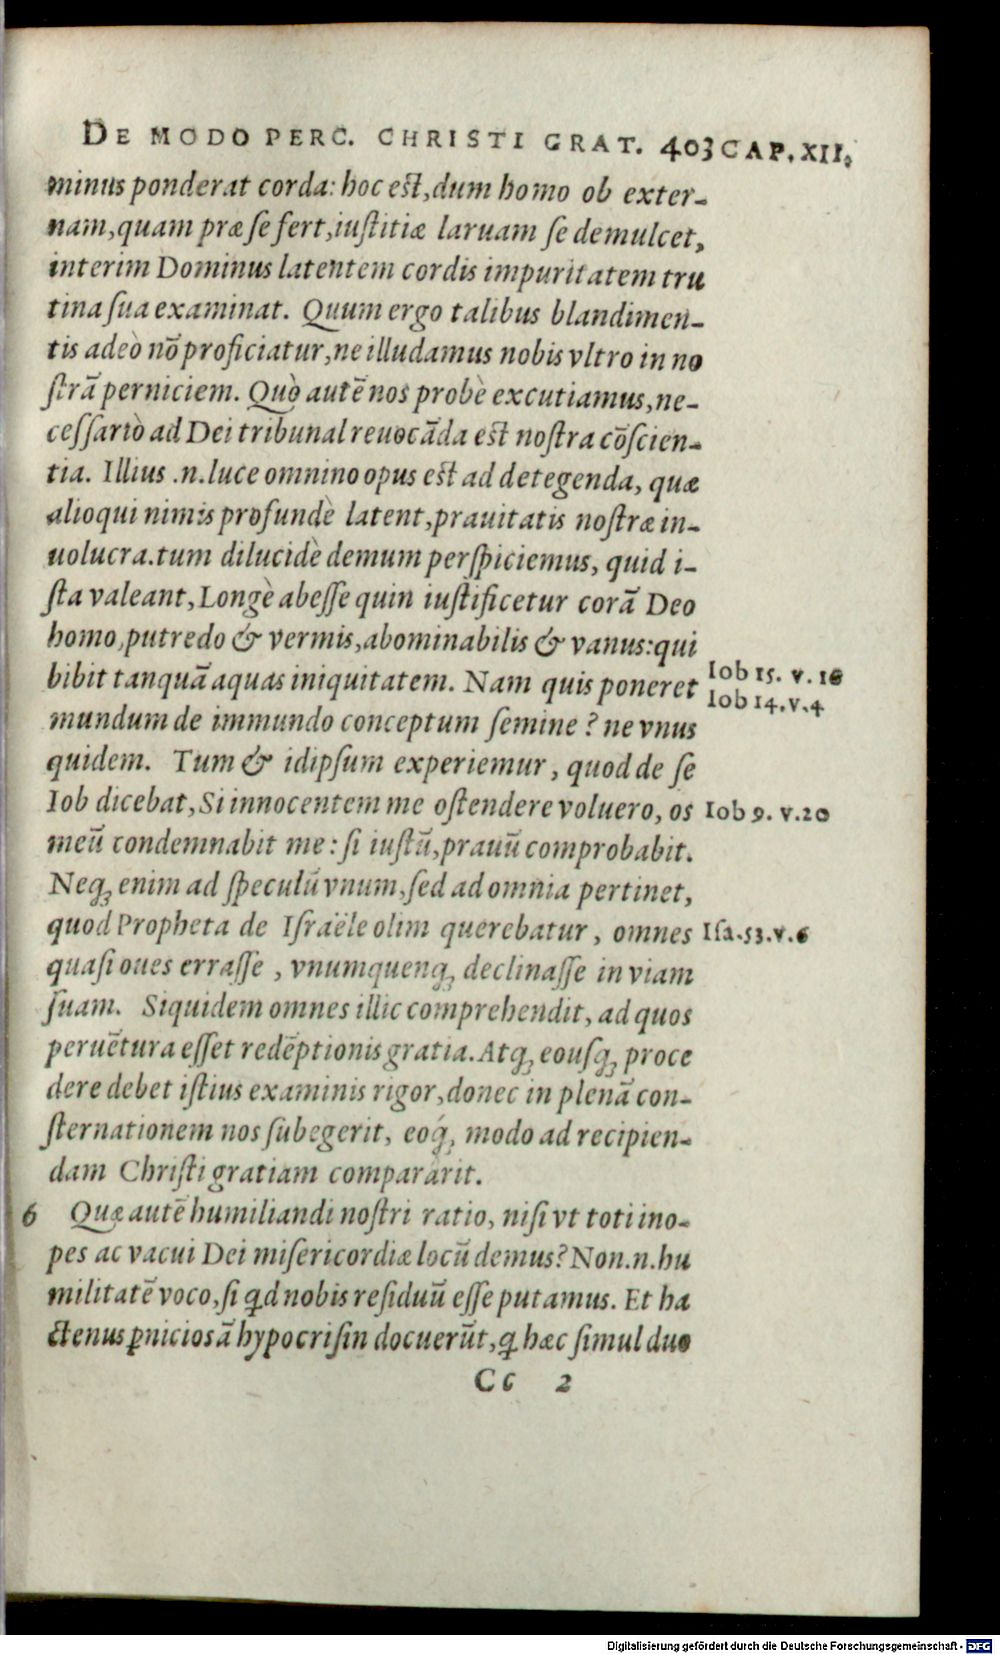 DE MODO PERC. CHRISTI GRAT. 403 CAP. XII.
minus ponderat corda: hoc est, dum homo ob exter-
nam, quam præ se fert, iuſtitiæ laruam ſe demulcet,
interim Dominus latentem cordis impuritatem tru
tina ſua examinat. Quum ergo talibus blandimen-
tis adeò nō proficiatur, ne illudamus nobis vltro in no
ſtrā perniciem. Quò autē nos probè excutiamus, ne-
ceſſariò ad Dei tribunal reuocāda est noſtra cōſcien-
tia. Illius .n. luce omnino opus est ad detegenda, quæ
alioqui nimis profundè latent, prauitatis noſtræ in-
uolucra. tum dilucidè demum perſpiciemus, quid i-
ſta valeant, Longè abeſſe quin iuſtificetur corā Deo
homo, putredo & vermis, abominabilis & vanus: qui
bibit tanquā aquas iniquitatem. Nam quis poneret
Iob 15. v. 16
Iob 14. v. 4
mundum de immundo conceptum ſemine ? ne vnus
quidem. Tum & idipſum experiemur, quod de ſe
Iob dicebat, Si innocentem me oſtendere voluero, os
Iob 9. v. 20
meū condemnabit me : ſi iuſtū, prauū comprobabit.
Neq; enim ad ſpeculū vnum, ſed ad omnia pertinet,
quod Propheta de Iſraële olim querebatur, omnes
Iſa. 53. v. 6
quaſi oues erraſſe, vnumquenq; declinaſſe in viam
ſuam. Siquidem omnes illic comprehendit, ad quos
peruētura eſſet redēptionis gratia. Atq; eouſq; proce
dere debet iſtius examinis rigor, donec in plenā con-
ſternationem nos ſubegerit, eoq́; modo ad recipien-
dam Chriſti gratiam compararit.
6 Quæ autē humiliandi noſtri ratio, niſi vt toti ino-
pes ac vacui Dei miſericordiæ locū demus? Non .n. hu
militatē voco, ſi qd nobis reſiduū eſſe putamus. Et ha
ctenus ꝑnicioſā hypocriſin docuerūt, q hæc ſimul duo
Cc 2
Digitalisierung gefördert durch die Deutsche Forschungsgemeinschaft - DFG